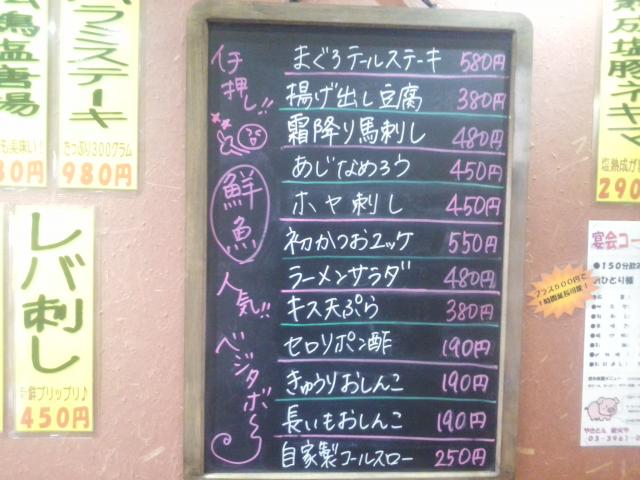 ハラミステーキ
たっぷり300グラム
980円
レバ刺し
新鮮プリップリ♪
450円
仔押し!!
鮮魚
人気!!
ベジタボ〜
まぐろテールステーキ 580円
揚げ出し豆腐 380円
霜降り馬刺し 480円
あじなめろう 450円
ホヤ刺し 450円
初かつおユッケ 550円
ラーメンサラダ 480円
キス天ぷら 380円
セロリポン酢 190円
きゅうりおしんこ 190円
長いもおしんこ 190円
自家製コールスロー 250円
熟成塩豚ネギマ
塩熟成が
290
宴会コー
●150分飲
プラス500円で
1時間延長可能!